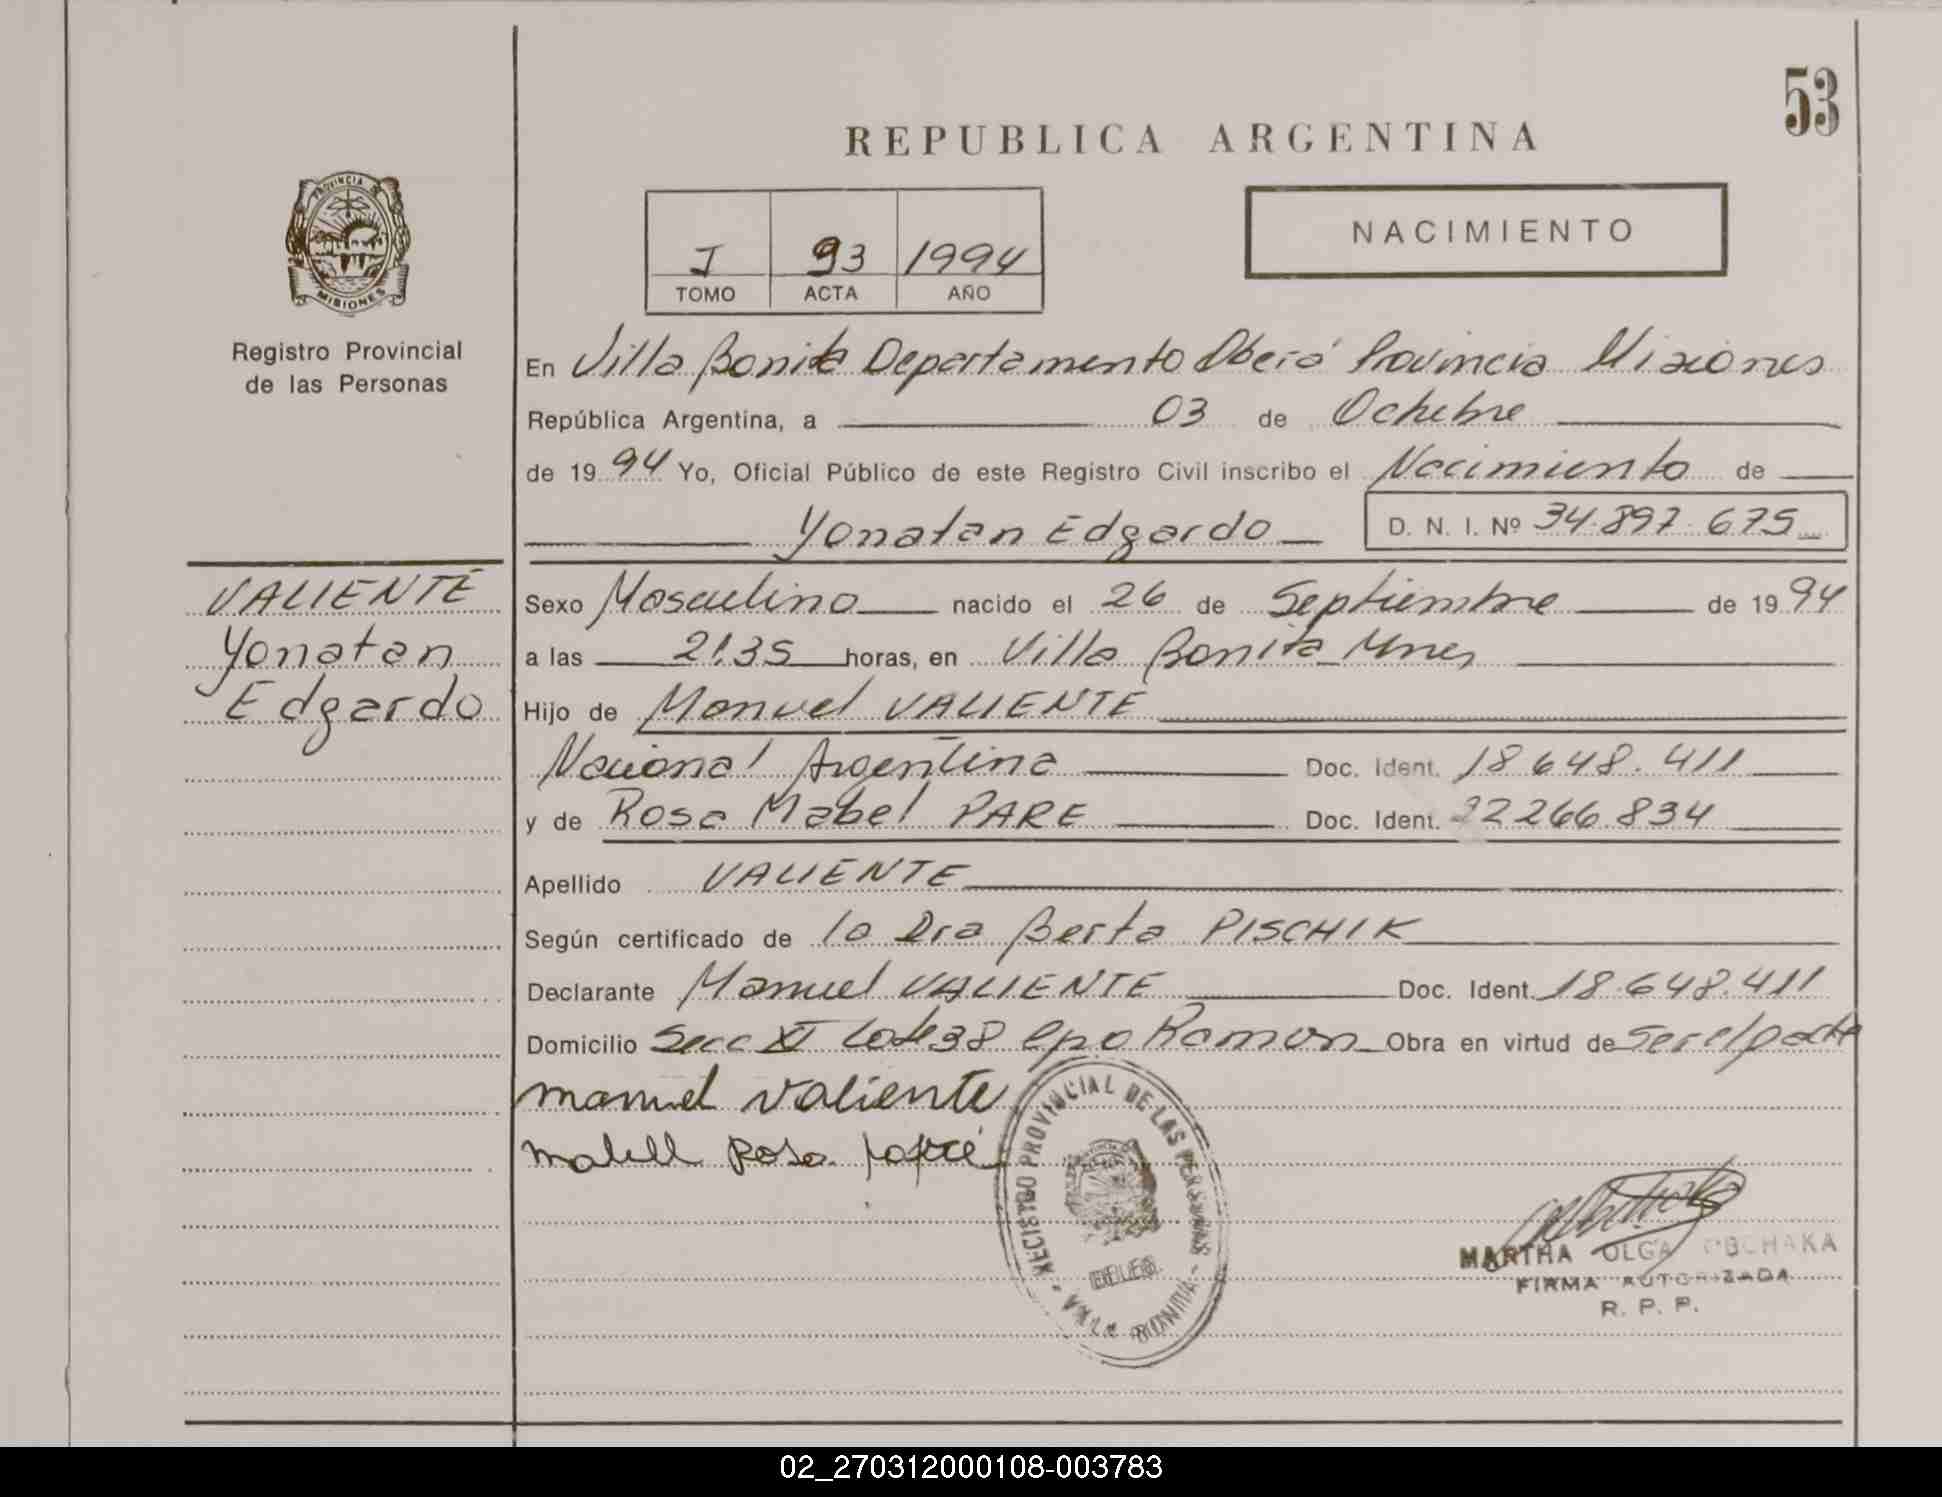 53
REPUBLICA ARGENTINA
PROVINCIA DE
MISIONES
Registro Provincial
de las Personas
I 93 1994
TOMO ACTA AÑO
NACIMIENTO
En Villa Bonita Departamento Oberá Provincia Misiones
República Argentina, a 03 de Octubre
de 1994 Yo, Oficial Público de este Registro Civil inscribo el Nacimiento de
Yonatan Edgardo D. N. I. Nº 34.897.675
VALIENTE
Yonatan
Edgardo
Sexo Masculino nacido el 26 de Septiembre de 1994
a las 21.35 horas, en Villa Bonita Mnes
Hijo de Manuel VALIENTE
Nacional Argentina Doc. Ident. 18.648.411
y de Rosa Mabel PARE Doc. Ident. 22266.834
Apellido VALIENTE
Según certificado de la Dra Berta PISCHIK
Declarante Manuel VALIENTE Doc. Ident. 18.648.411
Domicilio Secc XI Lote 38 Cpo Ramon Obra en virtud de ser el padre
manuel valiente
Rosa
REGISTRO PROVINCIAL DE LAS PERSONAS - VILLA BONITA -
MARTHA OLGA
FIRMA AUTORIZADA
R. P. P.
02_270312000108-003783